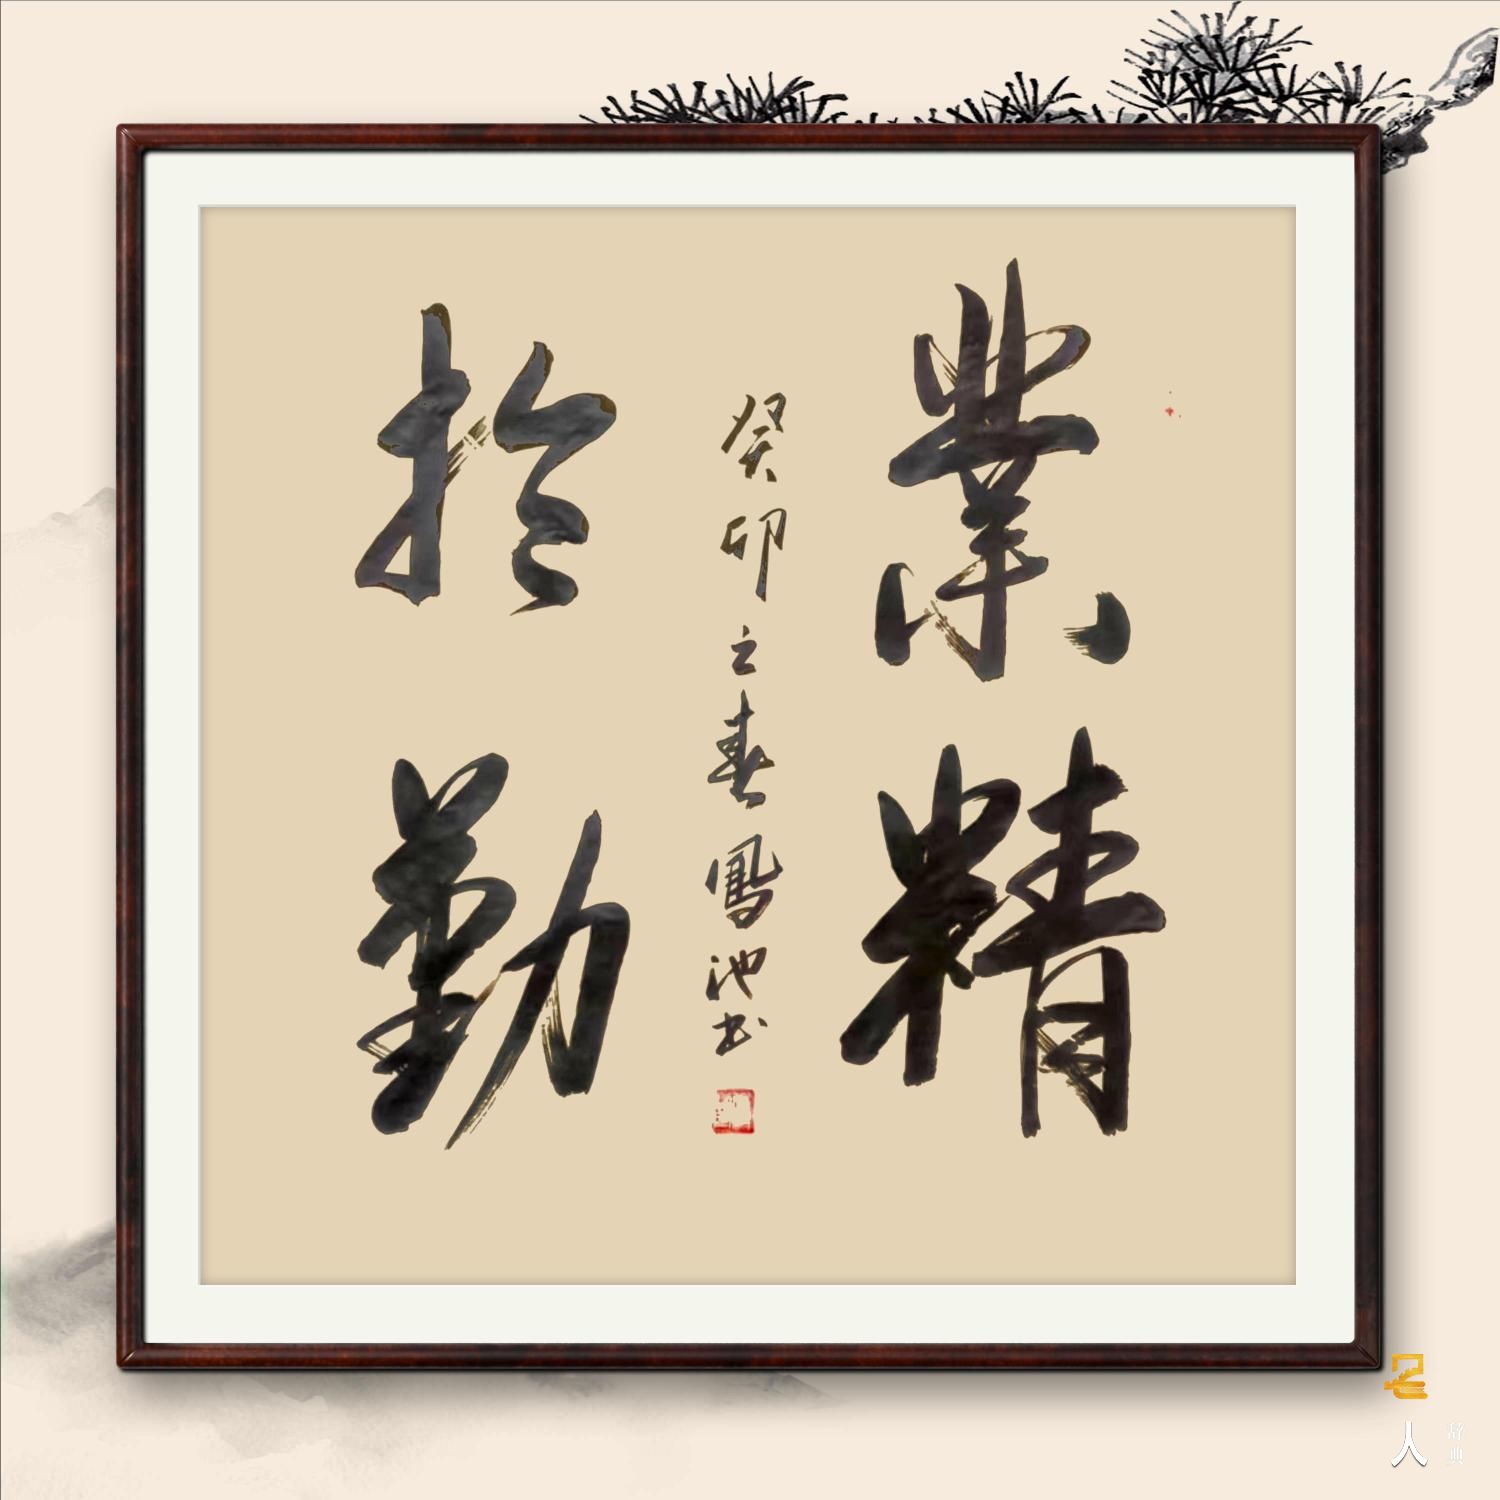 業精
於勤
癸卯之春鳳池书
名人
辞典